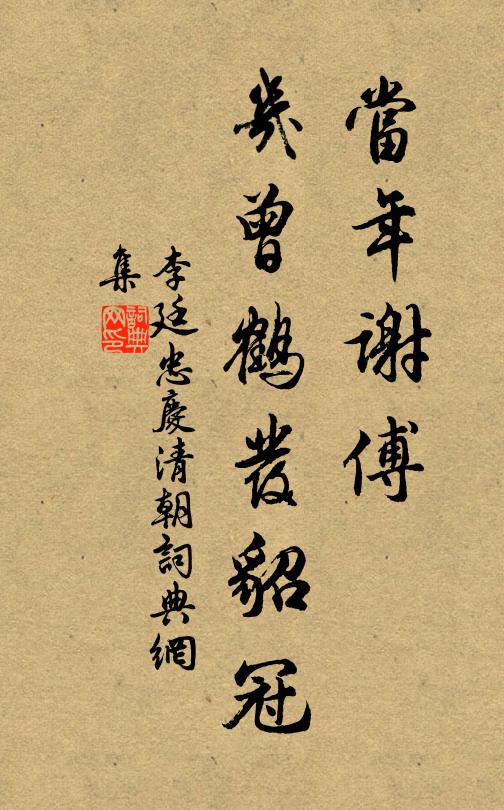 當年謝傅
幾曾鶴發貂冠
李廷忠慶清朝詞典網
集
詞典網印